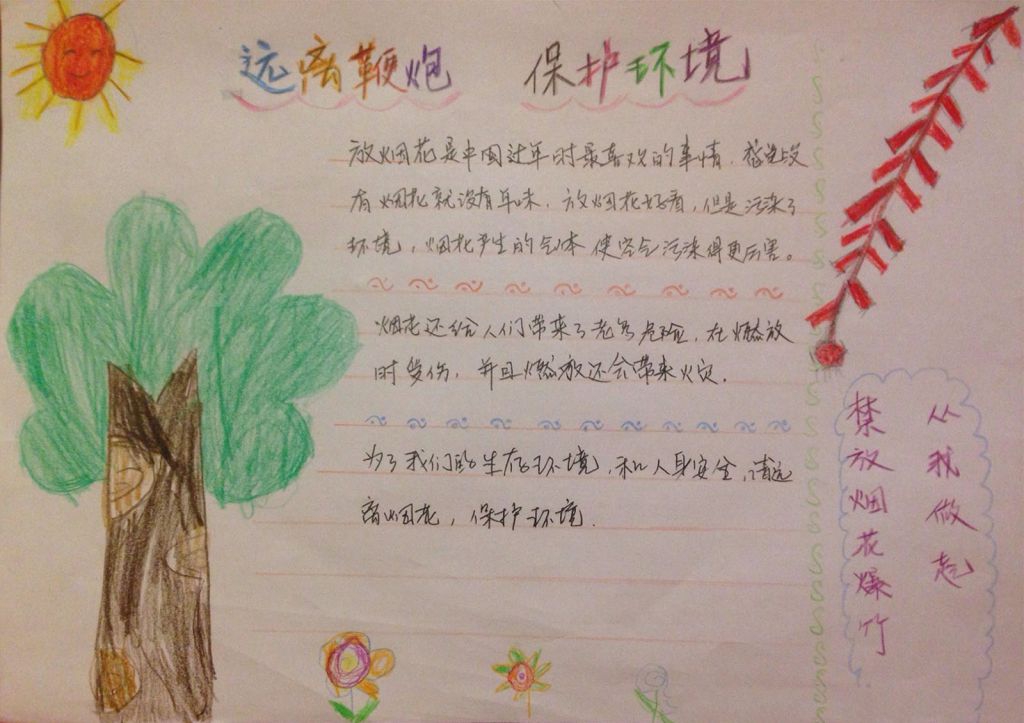 远离鞭炮 保护环境
放烟花是中国过年时最喜欢的事情.
有烟花就没有年味.放烟花好看,但是污染了
环境,烟花产生的气体使空气污染得更厉害。
烟花还给人们带来了危险,在燃放
时受伤.并且燃放还会带来火灾.
为了我们的生存环境,和人身安全,请远
离烟花,保护环境.
从我做起
禁放烟花爆竹